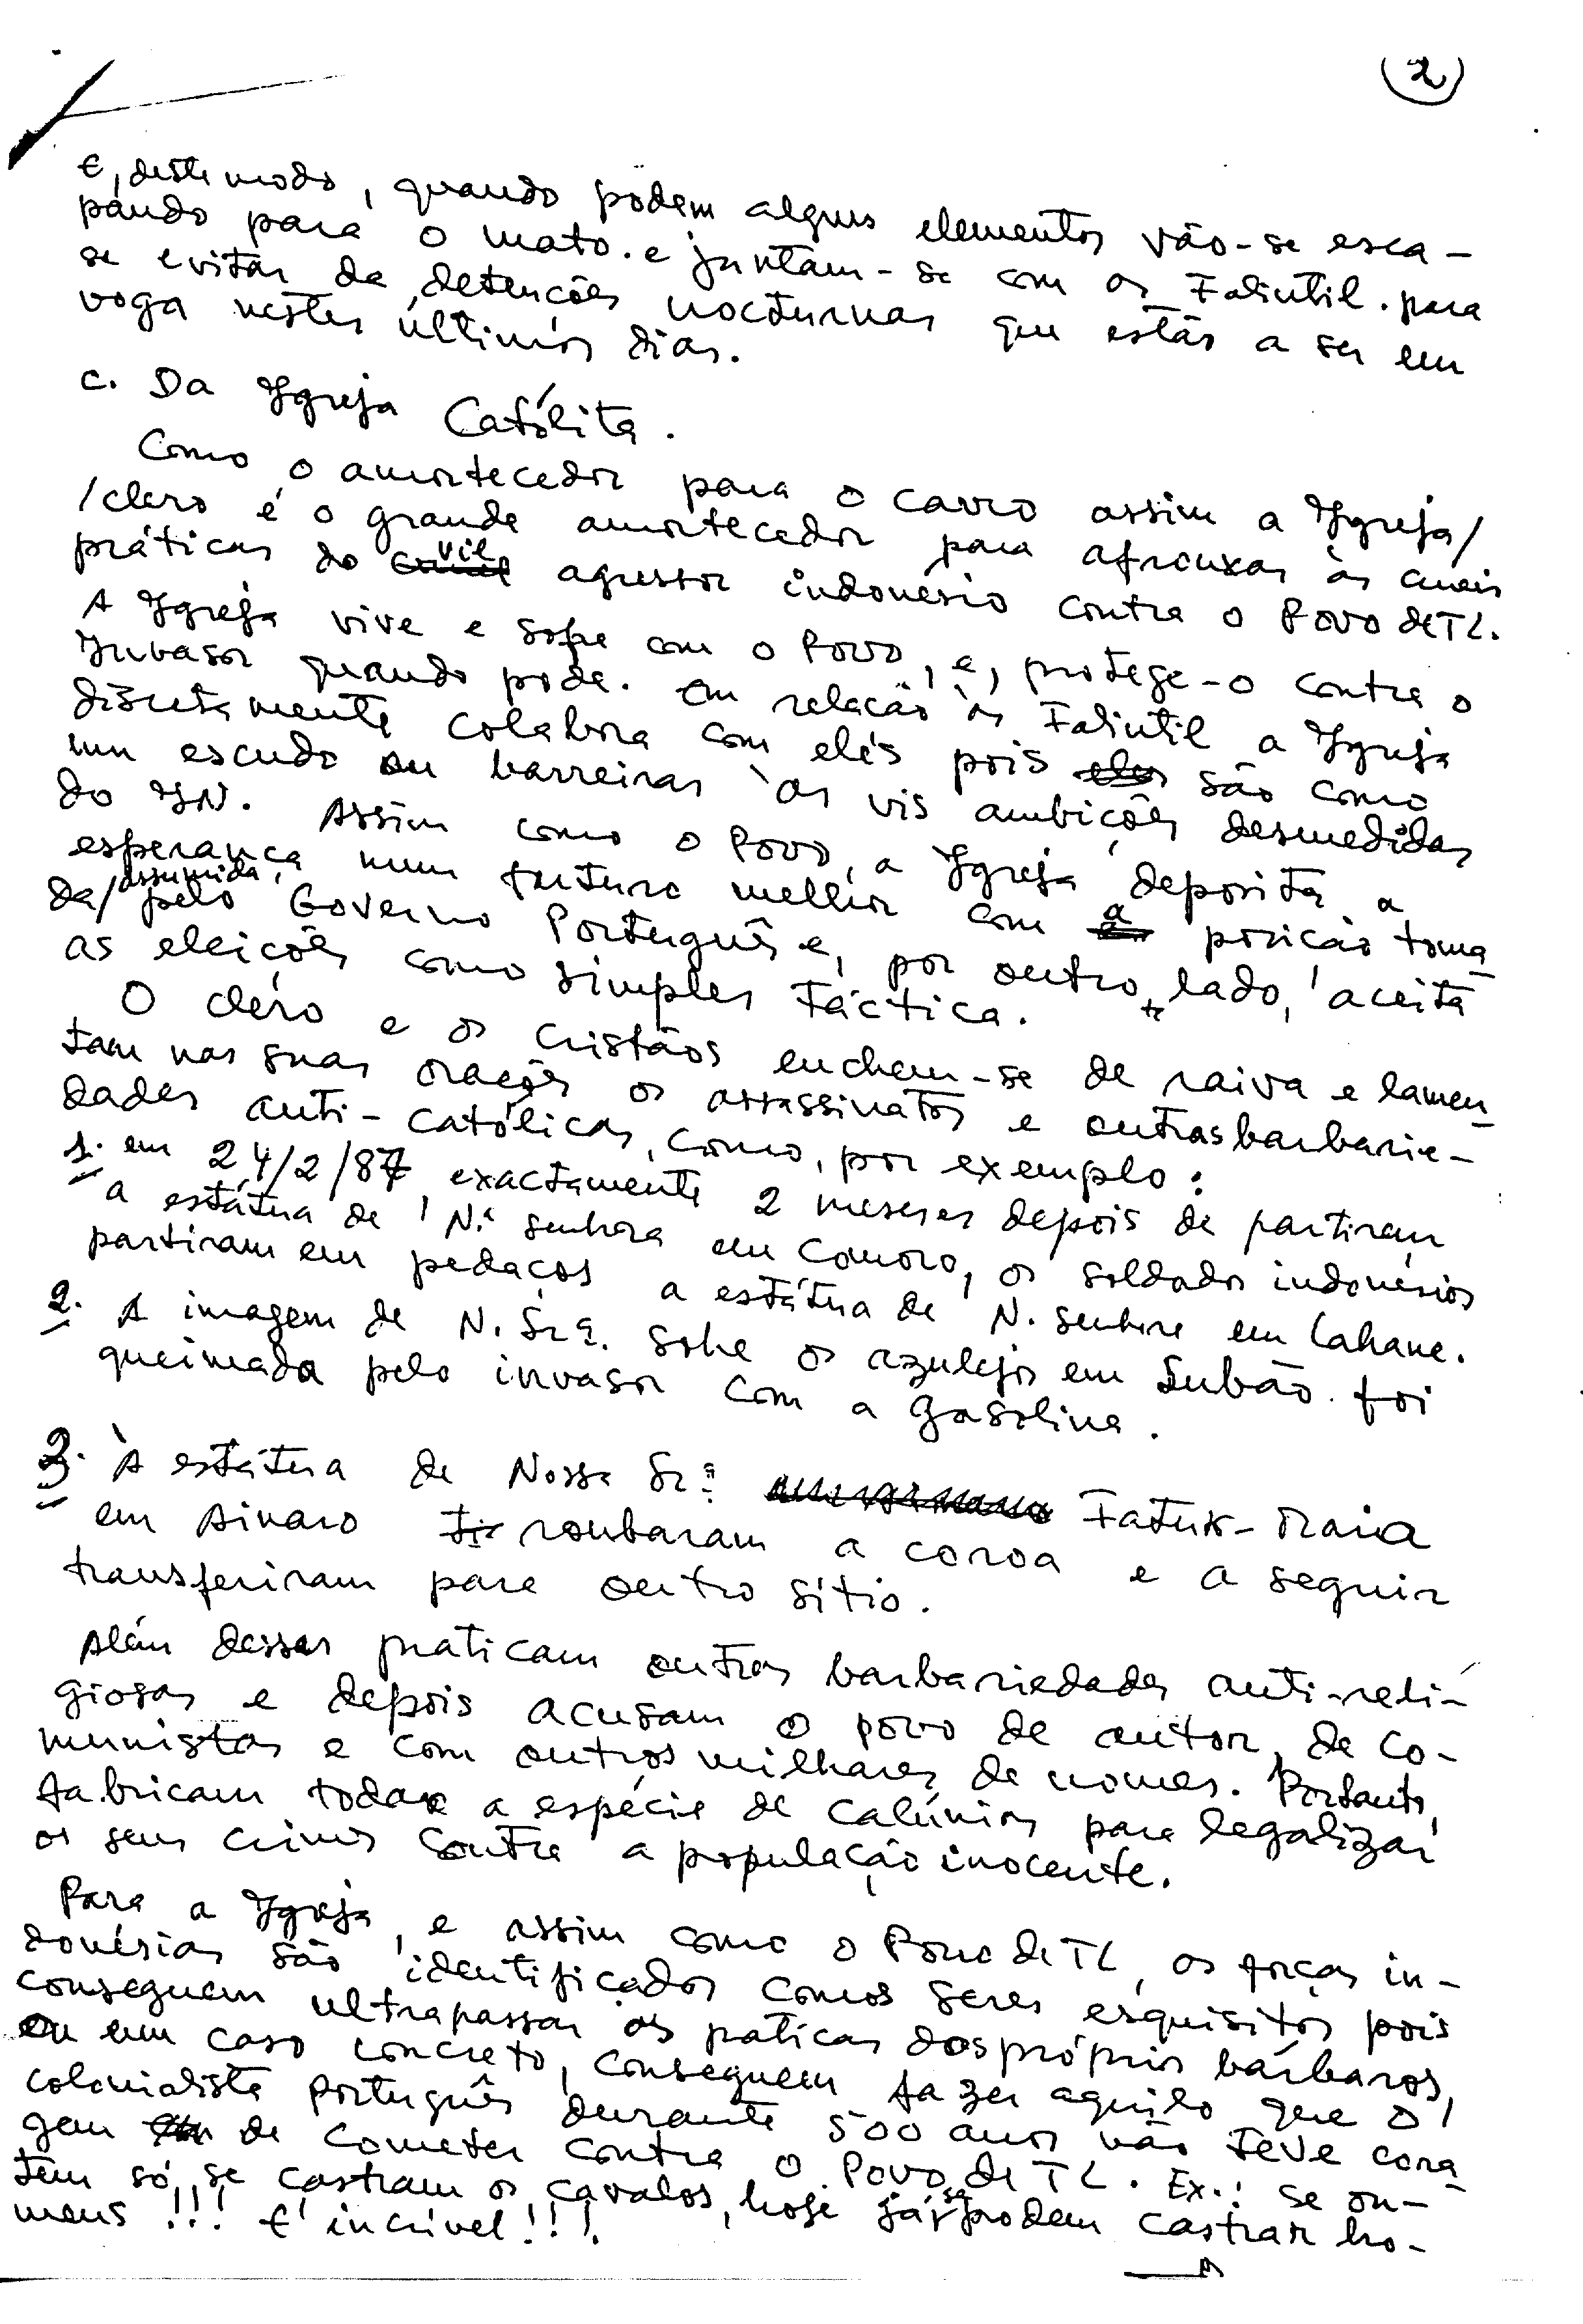 2
E, deste modo, quando podem alguns elementos vão-se esca-
pando para o mato. e juntam-se com as Falintil. para
se evitar da detenções nocturnas que estão a ser em
voga nestes últimos dias.
c. Da Igreja Católita.
Como o amortecedor para o carro assim a Igreja/
/clero é o grande amortecedor para afrouxar às cruéis
práticas do vil agressor indonésio contra o Povo de TL.
A Igreja vive e sofre com o Povo, e, protege-o contra o
Invasor quando pode. Em relação às Falintil a Igreja
discretamente colabora com elés pois são como
um escudo ou barreiras às vis ambições desmedidas
do IN. Assim como o Povo, a Igreja deposita a
esperança num futuro melhor com a posição toma
da/assumida, pelo Governo Português e, por outro lado, aceita
as eleições como simples táctica.
O clero e os cristãos enchem-se de raiva e lamen
tam nas suas orações os assassinatos e outras barbarie-
dades anti-católicas, como, por exemplo:
1. em 24/2/87, exactamente 2 meseses depois de partiram
a estátua de N.ª senhora em Comoro, os soldados indonésios
partiram em pedaços a estátua de N. senhora em Lahane.
2. A imagem de N. Srª. sobe os azulejos em Subão. foi
queimada pelo invasor com a gasolina.
3. À estátua de Nossa Srª Fatuk-Maria
em Ainaro roubaram a coroa e a seguir
transferiram para outro sítio.
Além dessas praticam outras barbariedades anti-reli-
giosas e depois acusam o povo de autor, de co-
munistas e com outros milhares de nomes. Portanto,
fabricam todas a espécie de calúnias para legalizar
os seus crimes contra a população inocente.
Para a Igreja, e assim como o Povo de TL, as forças in-
donésias são identificados comos seres esquisitos pois
conseguem ultrapassar as paticas dos próprios bárbaros,
ou em caso concreto, conseguem fazer aquilo que o
colonialista português durante 500 anos não teve cora
gem de cometer contra o Povo de TL. Ex.: se on-
tem só, se castram os cavalos, hoje já se podem castrar ho-
mens!!! É incrível!!!